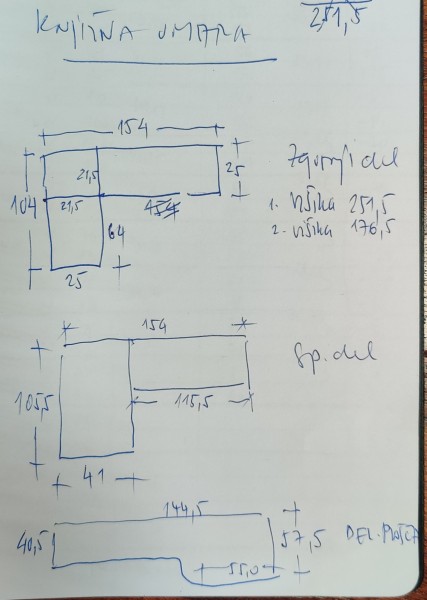 KNJIŽNA OMARA
251,5
154
21,5
25
Zgornji del
104
21,5
1. VIŠINA 251,5
64
2. VIŠINA 176,5
25
154
Sp. del
105,5
115,5
41
144,5
40,5
57,5
DEL. PLOŠČA
55,0